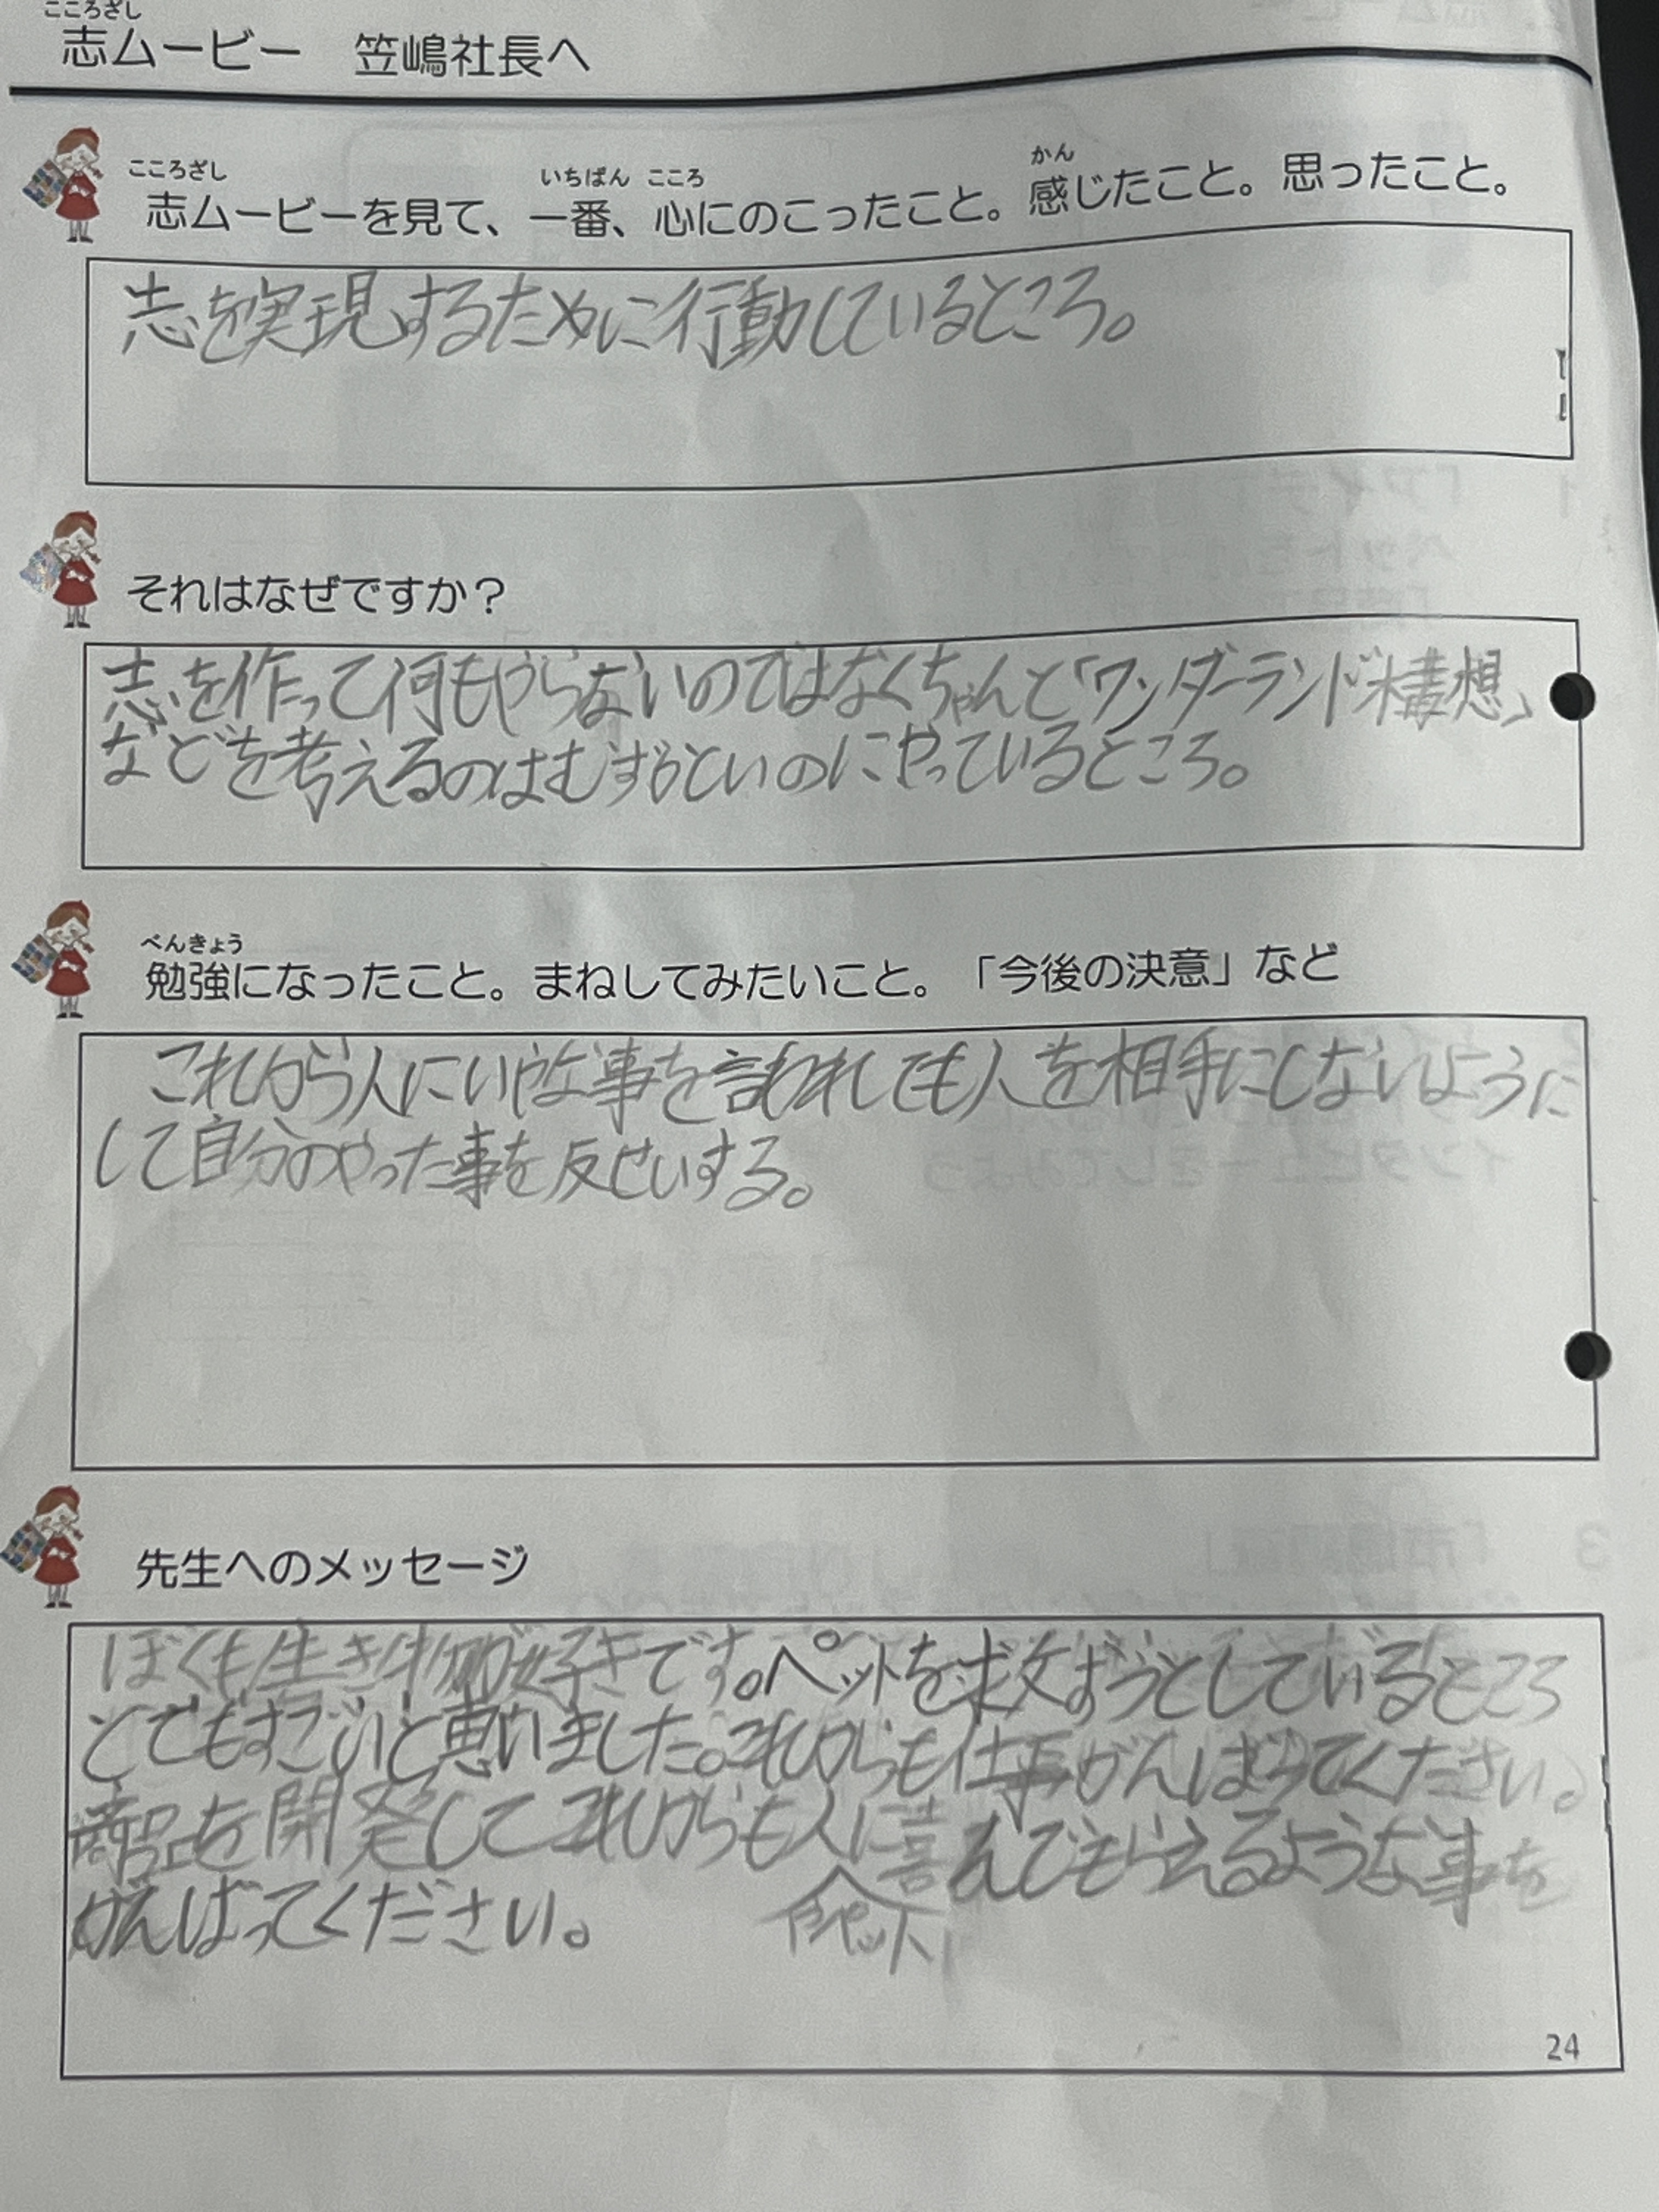 こころざし
志ムービー 笠嶋社長へ
こころざし いちばん こころ かん
志ムービーを見て、一番、心にのこったこと。感じたこと。思ったこと。
志を実現するために行動しているところ。
それはなぜですか？
志を作って何もやらないのではなくちゃんと「ワンダーランド構想」
などを考えるのはむずらといのにやっているところ。
べんきょう
勉強になったこと。まねしてみたいこと。「今後の決意」など
これから人にいやな事を言われしても人を相手にしないように
して自分のやった事を反せいする。
先生へのメッセージ
ぼくも生き物が好きです。ペットを求文おうとしているところ
とてもすごいと思いました。これからも仕事がんばってください。
商品を開発してこれからも人に喜んでもらえるような事を
がんばってください。
24